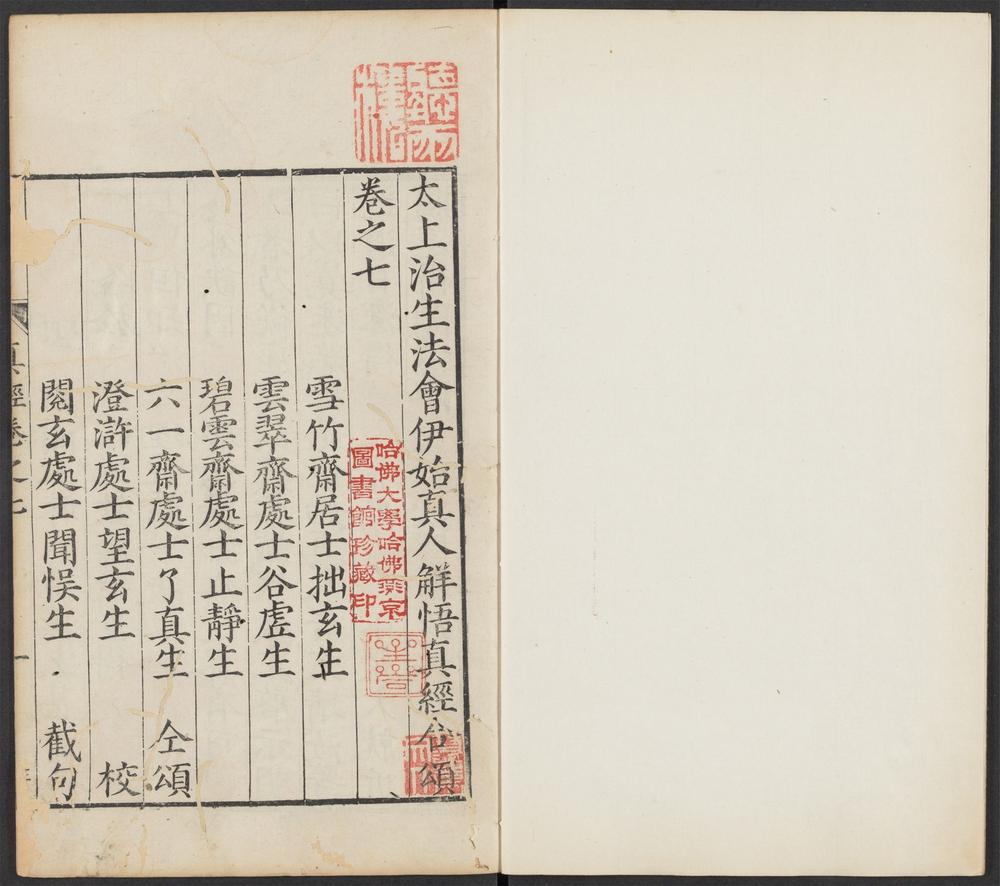 太上治生法會伊始真人解悟真經仝頌
卷之七
雪竹齋居士拙玄生
雲翠齋處士谷虛生
碧雲齋處士止靜生
六一齋處士了真生 仝頌
澄滸處士望玄生 校
閱玄處士聞悮生 截句
真經卷之七 一
哈佛大學哈佛燕京
圖書館珍藏印